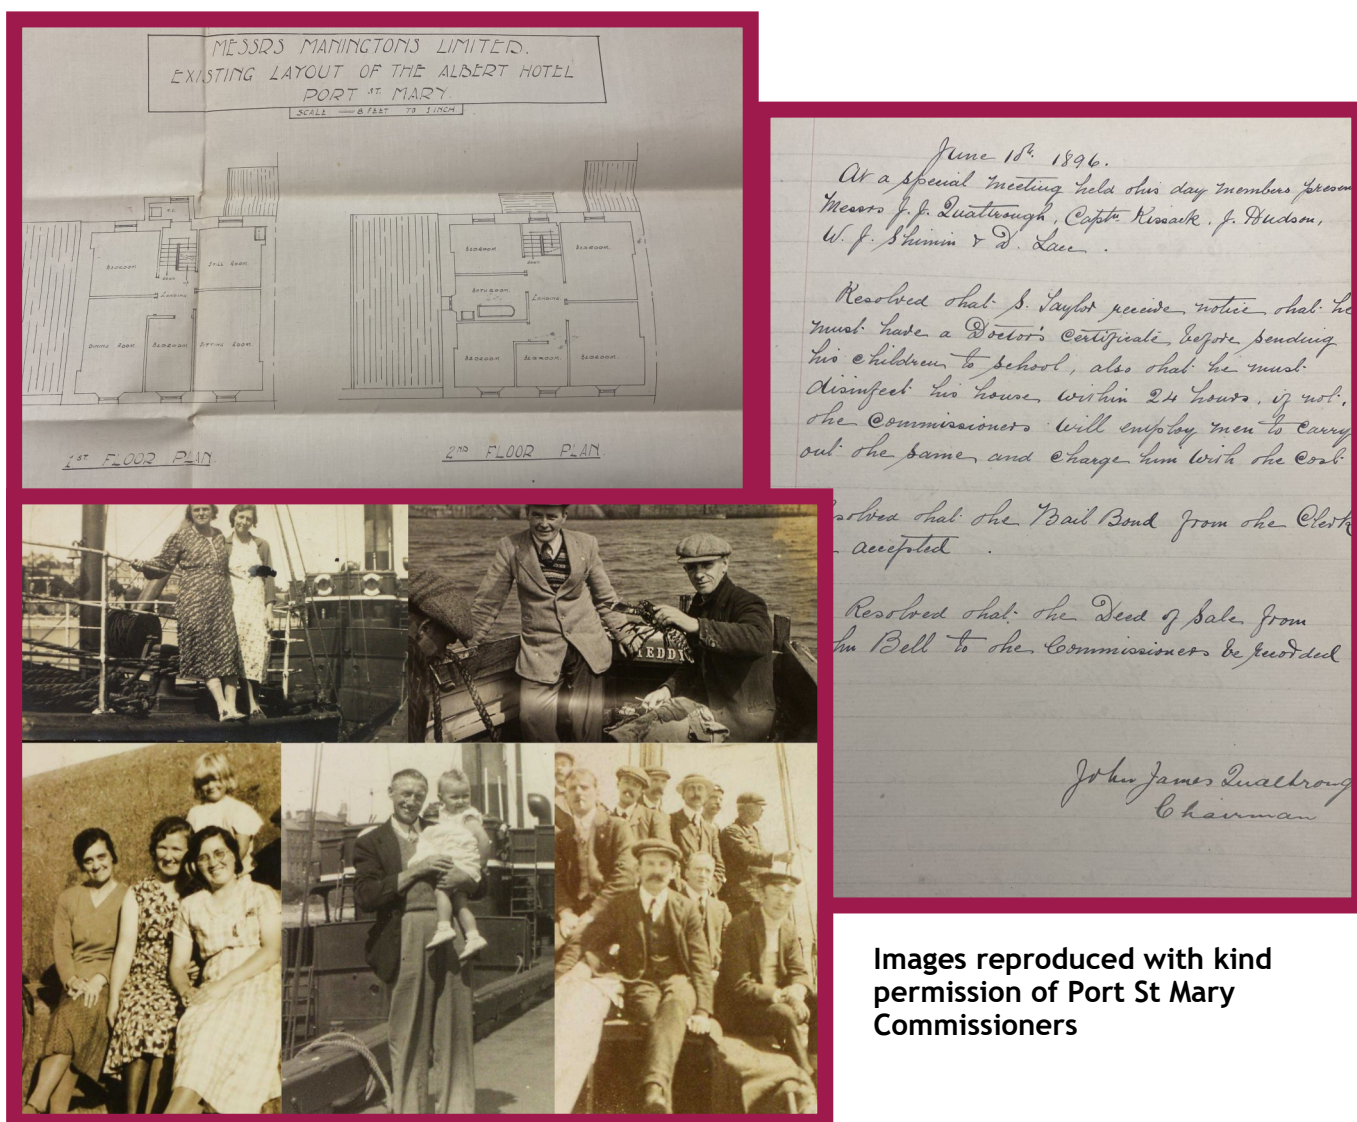 MESSRS MANINGTONS LIMITED.
EXISTING LAYOUT OF THE ALBERT HOTEL
PORT ST. MARY.
SCALE — 8 FEET TO 1 INCH
BEDROOM.
STILL ROOM.
DOWN
LANDING
DINING ROOM
BEDROOM
SITTING ROOM.
1ST FLOOR PLAN.
BEDROOM
BEDROOM.
DOWN
BATHROOM
LANDING
BEDROOM
BEDROOM
BEDROOM.
2ND FLOOR PLAN.
June 10th 1896.
At a special meeting held this day members presen
Messrs J. J. Qualtrough, Captn Kissack, J. Hudson,
W. J. Shimin & D. Lace.
Resolved that S. Taylor receive notice that he
must have a Doctor's Certificate before sending
his children to school, also that he must
disinfect his house within 24 hours, if not,
the Commissioners will employ men to carry
out the same and charge him with the cost
solved that the Bail Bond from the Clerk
accepted.
Resolved that the Deed of Sale from
hn Bell to the Commissioners be recorded
John James Qualtroug
Chairman
TEDDY
Images reproduced with kind
permission of Port St Mary
Commissioners